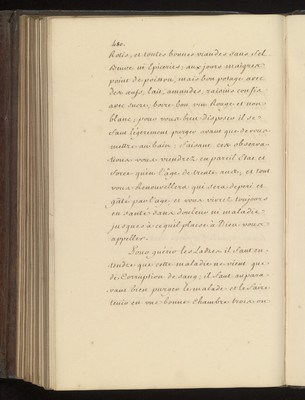 480.
Rotis, et toutes bonnes viandes sans Sel
Beure ni Epiceries, aux jours maigres
point de poisson, mais bon potage avec
des œufs, lait, amandes, raisins confis
avec sucre, boire bon vin Rouge et non
blanc; pour vous bien disposer il se
faut légèrement purger avant que de vous
mettre au bain; faisant ces observa-
tions vous viendrez en pareil Etat et
force qu'en l'âge de trente ans, et tout
vous Renouvellera qui sera déperi et
gâté par l'age, et vous vivrez toujours
en santé sans douleur ni maladie
jusques à ce qu'il plaise à Dieu vous
appeller.
Pour guérir les Ladres il faut en-
tendre que cette maladie ne vient que
de Corruption de sang; il faut aupara-
vant bien purger le malade et le faire
tenir en une bonne chambre trois ou